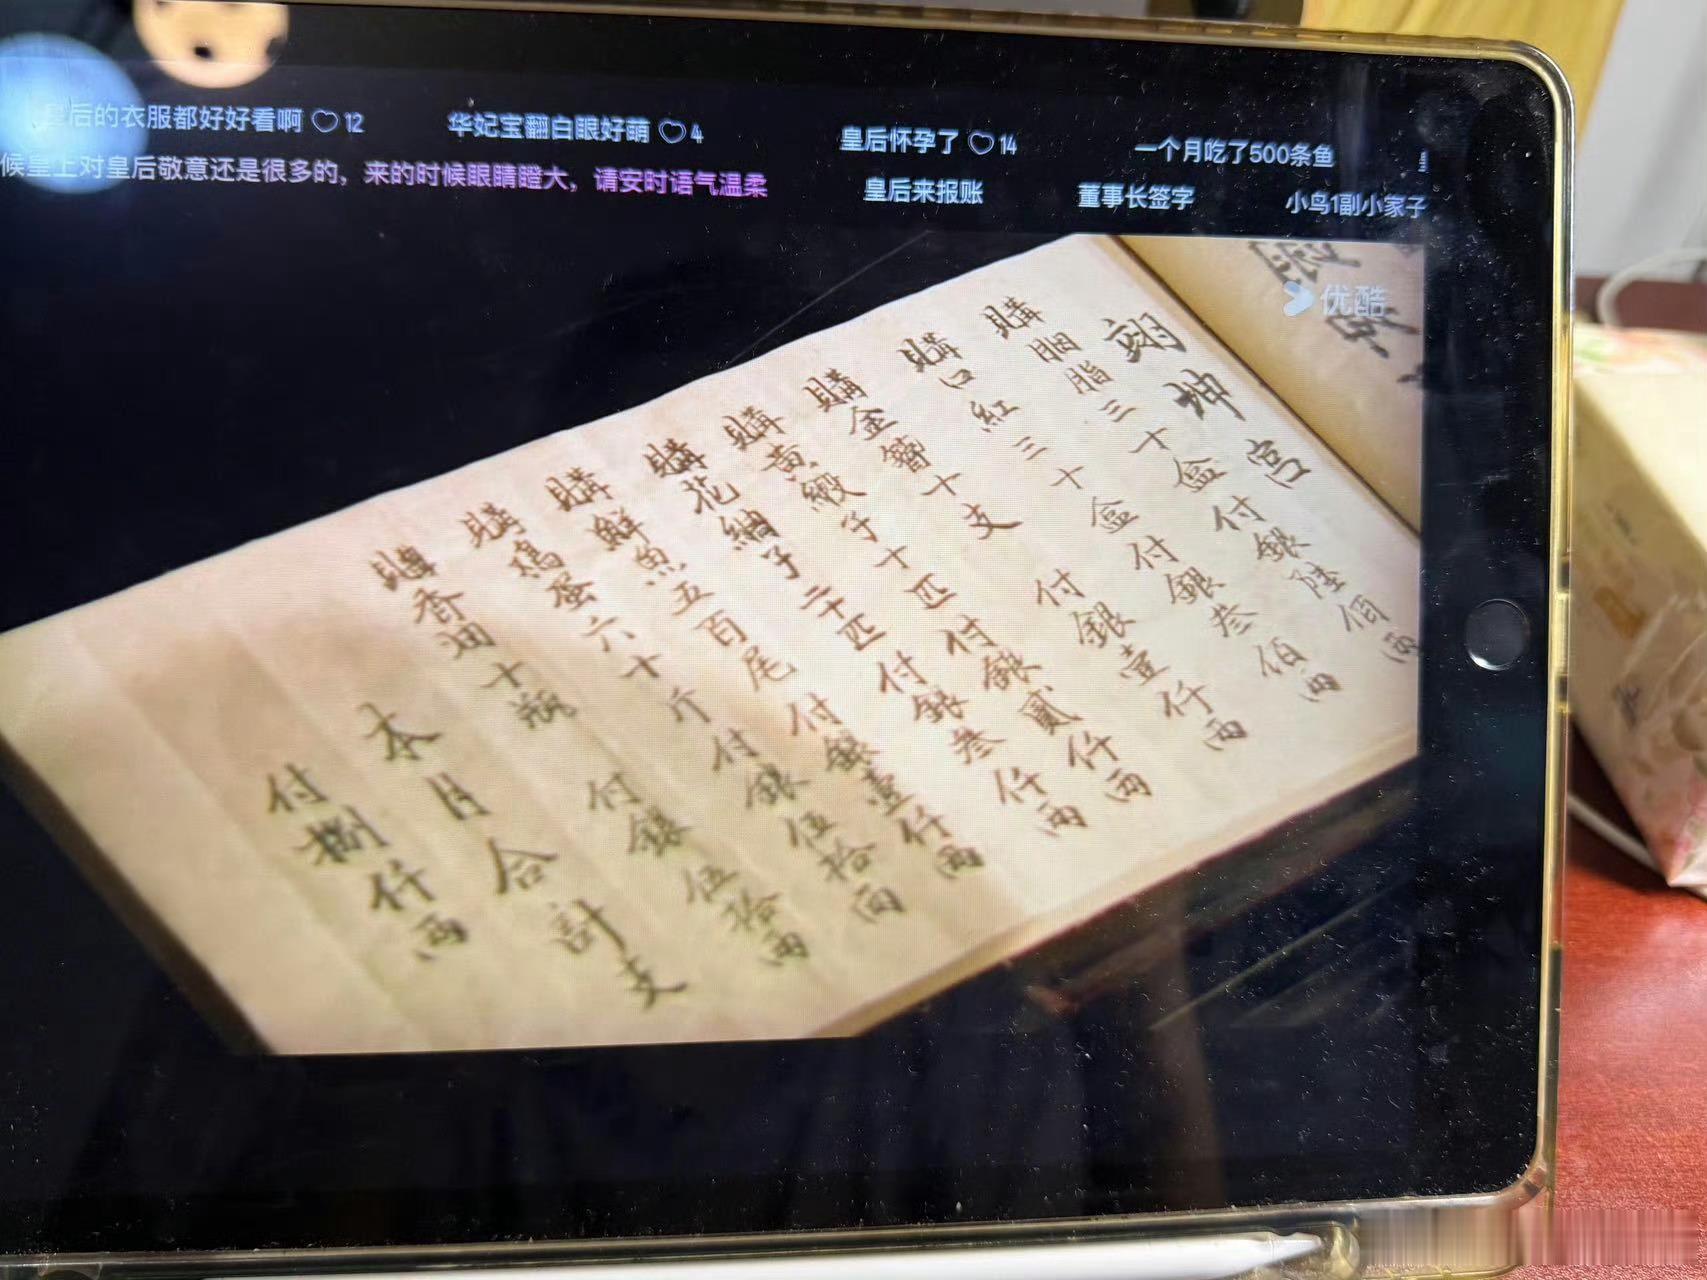 皇后的衣服都好好看啊 ♡ 12
华妃宝翻白眼好萌 ♡ 4
皇后怀孕了 ♡ 14
一个月吃了500条鱼
候皇上对皇后敬意还是很多的，来的时候眼睛瞪大，请安时语气温柔
皇后来报账
董事长签字
小鸟1副小家子
优酷
翊坤宫
購胭脂三十盒付銀陸佰兩
購口紅三十盒付銀叁佰兩
購金簪十支付銀壹仟兩
購黃緞子十匹付銀貳仟兩
購花紬子二十匹付銀叁仟兩
購鮮魚五百尾付銀壹仟兩
購鸡蛋六十斤付銀伍拾兩
購香油十瓶付銀伍拾兩
本月合計支
付捌仟兩